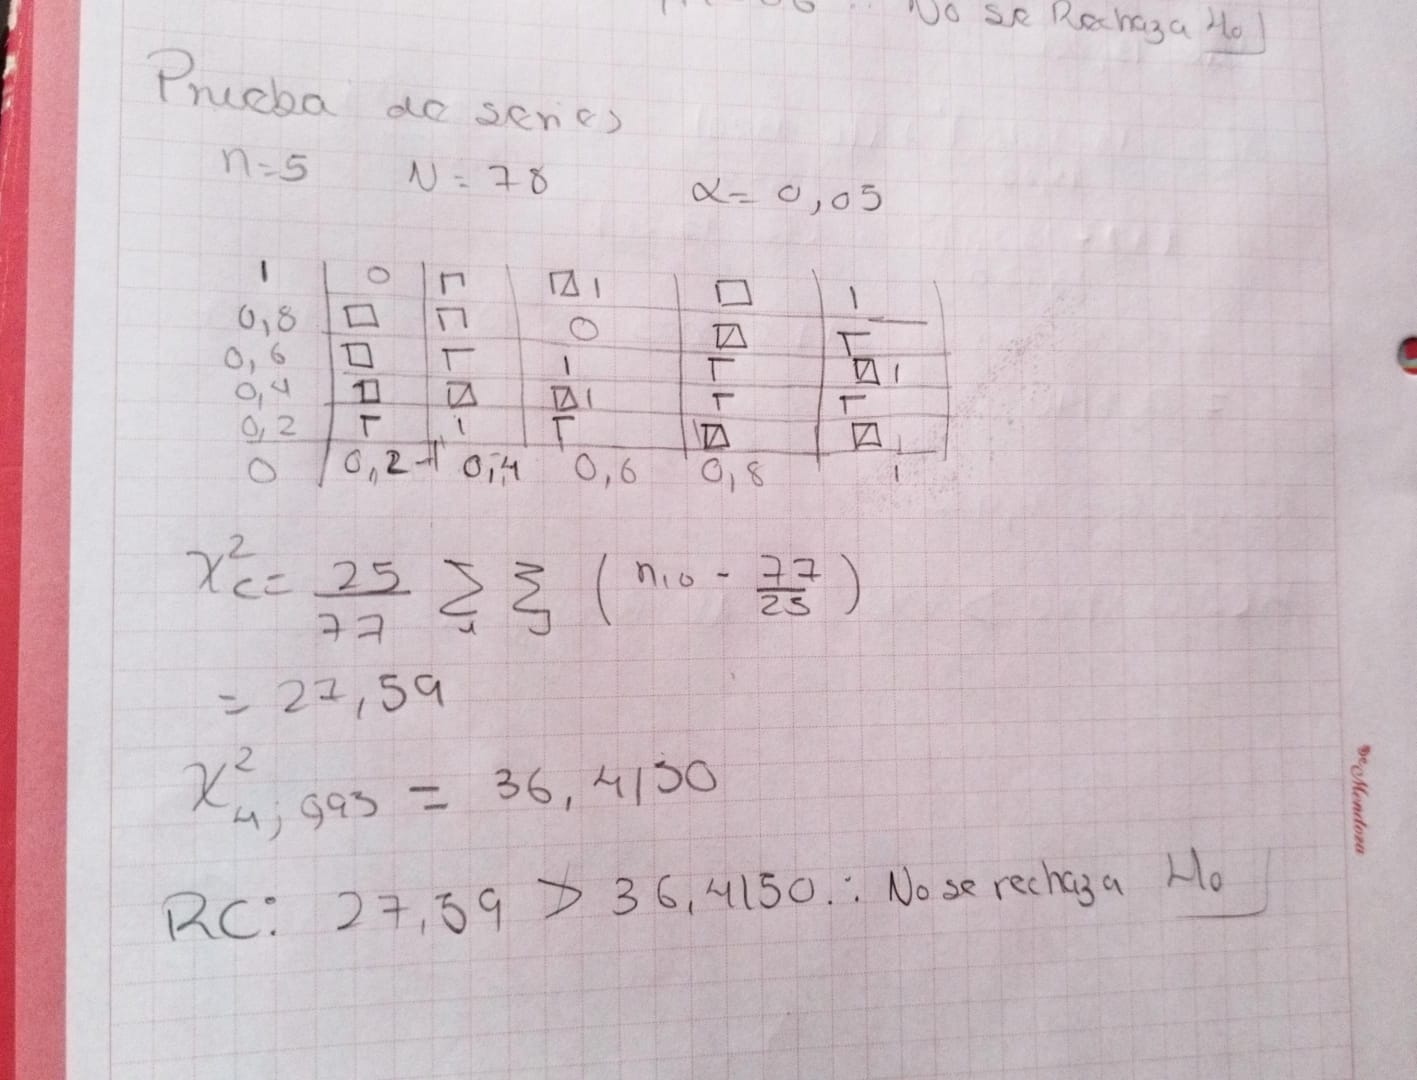 No se Rechaza Ho
Prueba de series
n=5 N=78 α=0,05
1 0 1 1
0,8 0
0,6 1 1
0,4 1
0,2 1
0 0,2 0,4 0,6 0,8 1
χ²c= 25/77 Σ Σ ( n,o - 77/25 )
= 27,59
χ² 4; 995 = 36,4150
RC: 27,59 ≯ 36,4150 ∴ No se rechaza Ho
De Mendoza